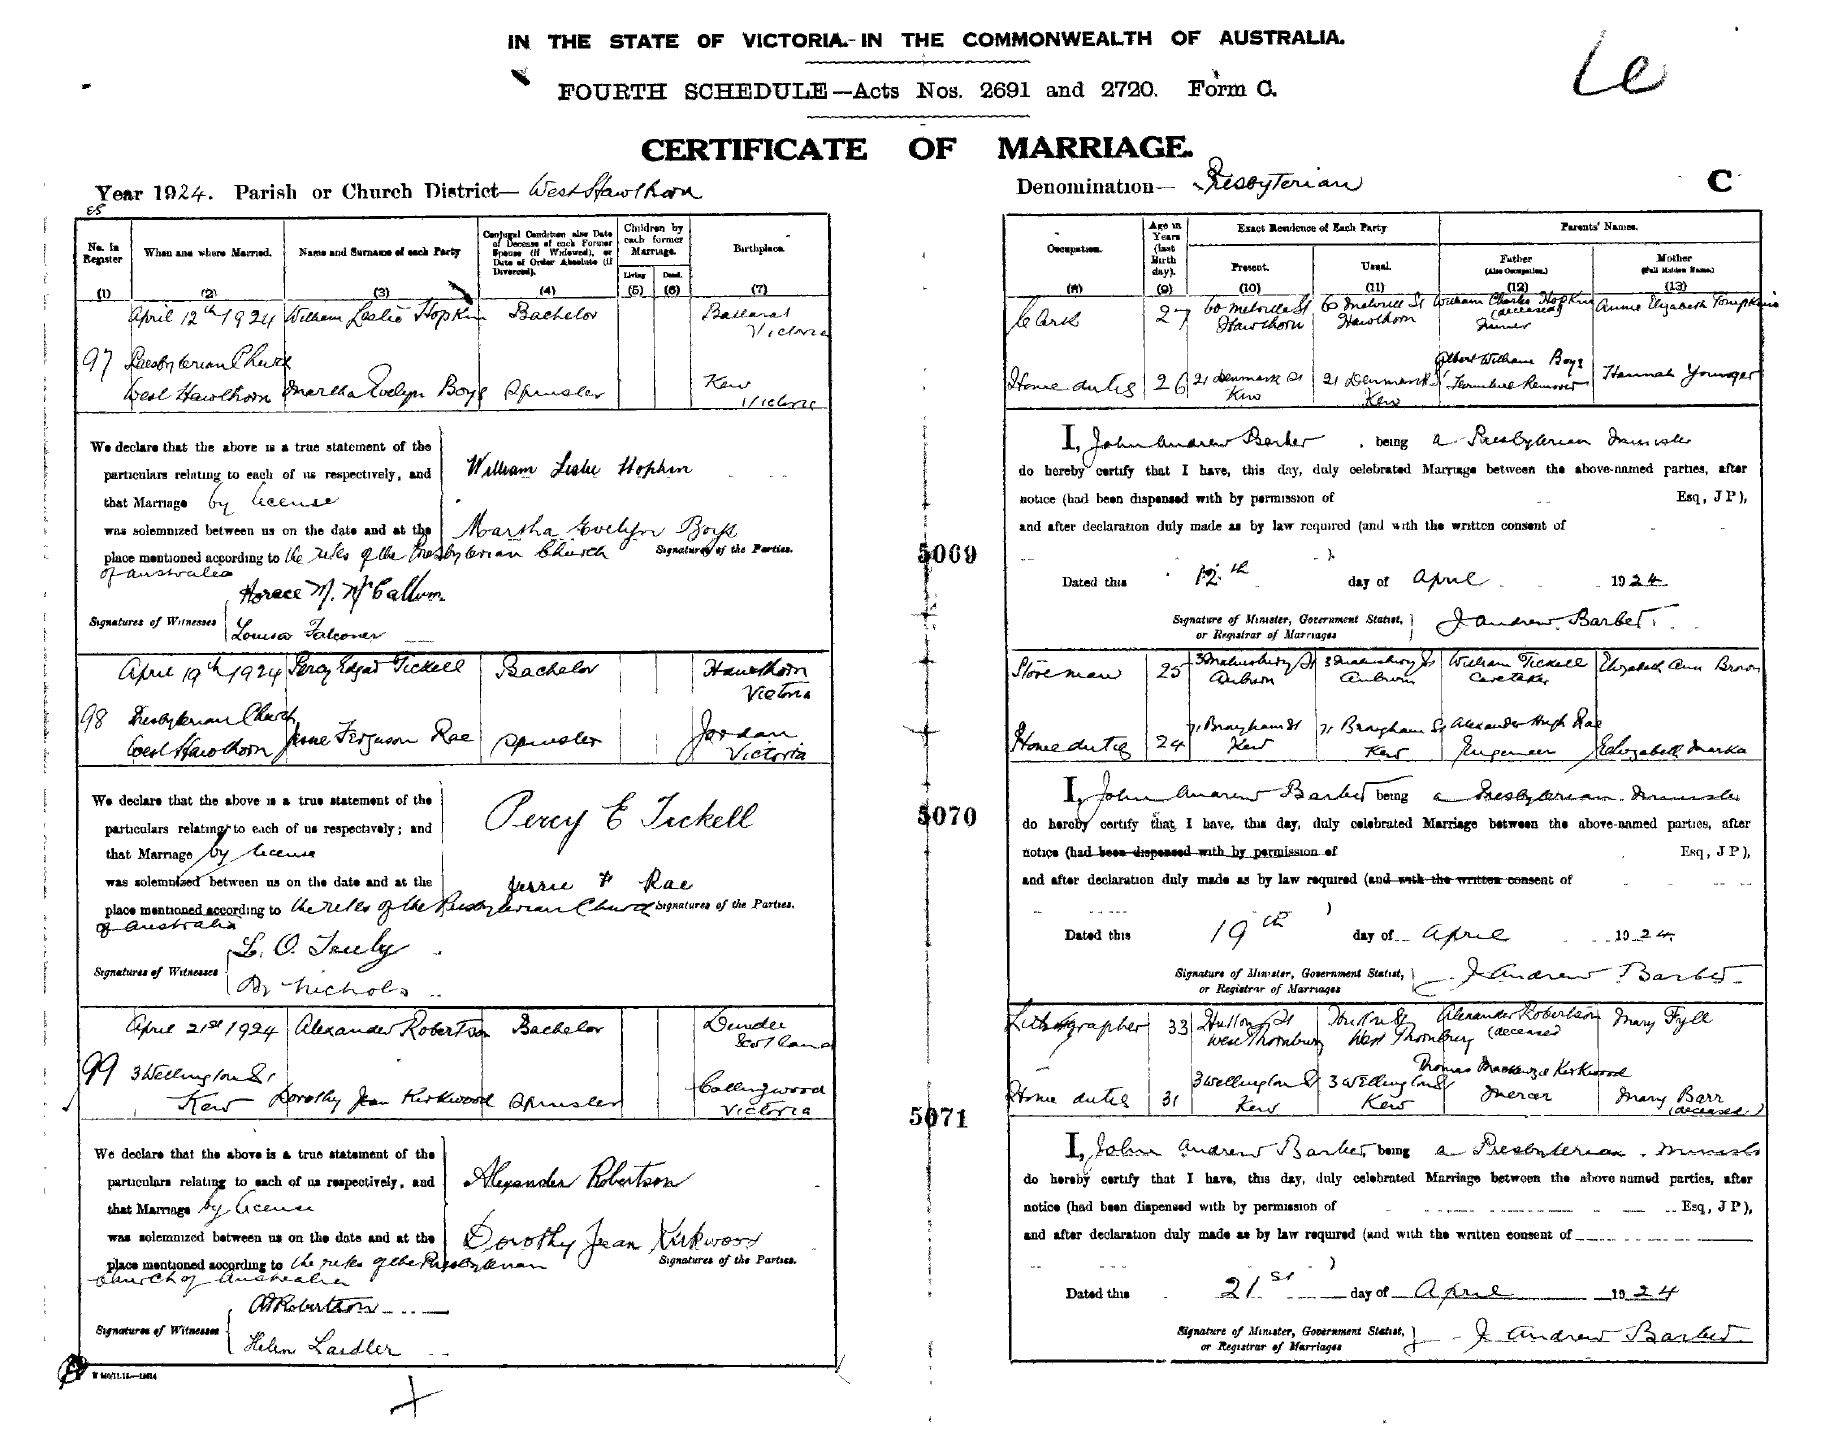 IN THE STATE OF VICTORIA.-IN THE COMMONWEALTH OF AUSTRALIA.
FOURTH SCHEDULE—Acts Nos. 2691 and 2720. Form C.
CERTIFICATE OF MARRIAGE.
Year 1924. Parish or Church District— West Hawthorn
Denomination— Presbyterian
C
No. in Register
When and where Married.
Name and Surname of each Party
Conjugal Condition also Date of Decease of each Former Spouse (if Widowed), or Date of Order Absolute (if Divorced).
Children by each former Marriage.
Living Dead.
Birthplace.
(1) (2) (3) (4) (5) (6) (7)
April 12th 1924 William Leslie Hopkin Bachelor Ballarat Victoria
97 Presbyterian Church
West Hawthorn Martha Evelyn Boys Spinster Kew Victoria
We declare that the above is a true statement of the
particulars relating to each of us respectively, and William Leslie Hopkin
that Marriage by license
was solemnized between us on the date and at the Martha Evelyn Boys
place mentioned according to the rites of the Presbyterian Church Signatures of the Parties.
of Australia
Horace N. McCallum
Signatures of Witnesses
Louisa Falconer
April 19th 1924 Percy Edgar Tickell Bachelor Hawthorn Victoria
98 Presbyterian Church
West Hawthorn Jessie Ferguson Rae Spinster Jordan Victoria
We declare that the above is a true statement of the
particulars relating to each of us respectively; and Percy E Tickell
that Marriage by license
was solemnized between us on the date and at the Jessie F Rae
place mentioned according to the rites of the Presbyterian Church Signatures of the Parties.
of Australia
Signatures of Witnesses
Nichols
April 21st 1924 Alexander Robertson Bachelor Dundee Scotland
99 3 Wellington St
Kew Dorothy Jean Kirkwood Spinster Collingwood Victoria
We declare that the above is a true statement of the
particulars relating to each of us respectively, and Alexander Robertson
that Marriage by license
was solemnized between us on the date and at the Dorothy Jean Kirkwood
place mentioned according to the rites of the Presbyterian Signatures of the Parties.
Church of Australia
Robertson
Signatures of Witnesses
Helen Laidler
5069
5070
5071
Occupation.
Age in Years (last Birth day).
Exact Residence of Each Party
Present. Usual.
Parents' Names.
Father (Also Occupation.)
Mother (Full Maiden Name.)
(8) (9) (10) (11) (12) (13)
Clerk 27 60 Melville St Hawthorn 60 Melvill St Hawthorn William Charles Hopkin (deceased) Miner Annie Elizabeth Tompkins
Home duties 26 21 Denmark St Kew 21 Denmark St Kew Albert William Boys Furniture Remover Hannah Younger
I, John Andrew Barber, being a Presbyterian Minister
do hereby certify that I have, this day, duly celebrated Marriage between the above-named parties, after
notice (had been dispensed with by permission of Esq, J P),
and after declaration duly made as by law required (and with the written consent of
)
Dated this 12th day of April 1924
Signature of Minister, Government Statist,
or Registrar of Marriages
J Andrew Barber.
Storeman 25 3 Malmsbury St Auburn 3 Malmsbury St Auburn William Tickell Caretaker Elizabeth Ann Brown
Home duties 24 71 Brougham St Kew 71 Brougham St Kew Alexander Hugh Rae Engineer Elizabeth Marka
I, John Andrew Barber being a Presbyterian Minister
do hereby certify that I have, this day, duly celebrated Marriage between the above-named parties, after
notice (had been dispensed with by permission of Esq, J P),
and after declaration duly made as by law required (and with the written consent of
)
Dated this 19th day of April 1924
Signature of Minister, Government Statist,
or Registrar of Marriages
J Andrew Barber
Lithographer 33 Hutton St West Thornbury Hutton St West Thornbury Alexander Robertson (deceased Mary Fyll
Home duties 31 3 Wellington St Kew 3 Wellington St Kew Thomas Mackenzie Kirkwood Mercer Mary Barr (deceased)
I, John Andrew Barber being a Presbyterian Minister
do hereby certify that I have, this day, duly celebrated Marriage between the above named parties, after
notice (had been dispensed with by permission of Esq, J P),
and after declaration duly made as by law required (and with the written consent of
)
Dated this 21st day of April 1924
Signature of Minister, Government Statist,
or Registrar of Marriages
J Andrew Barber